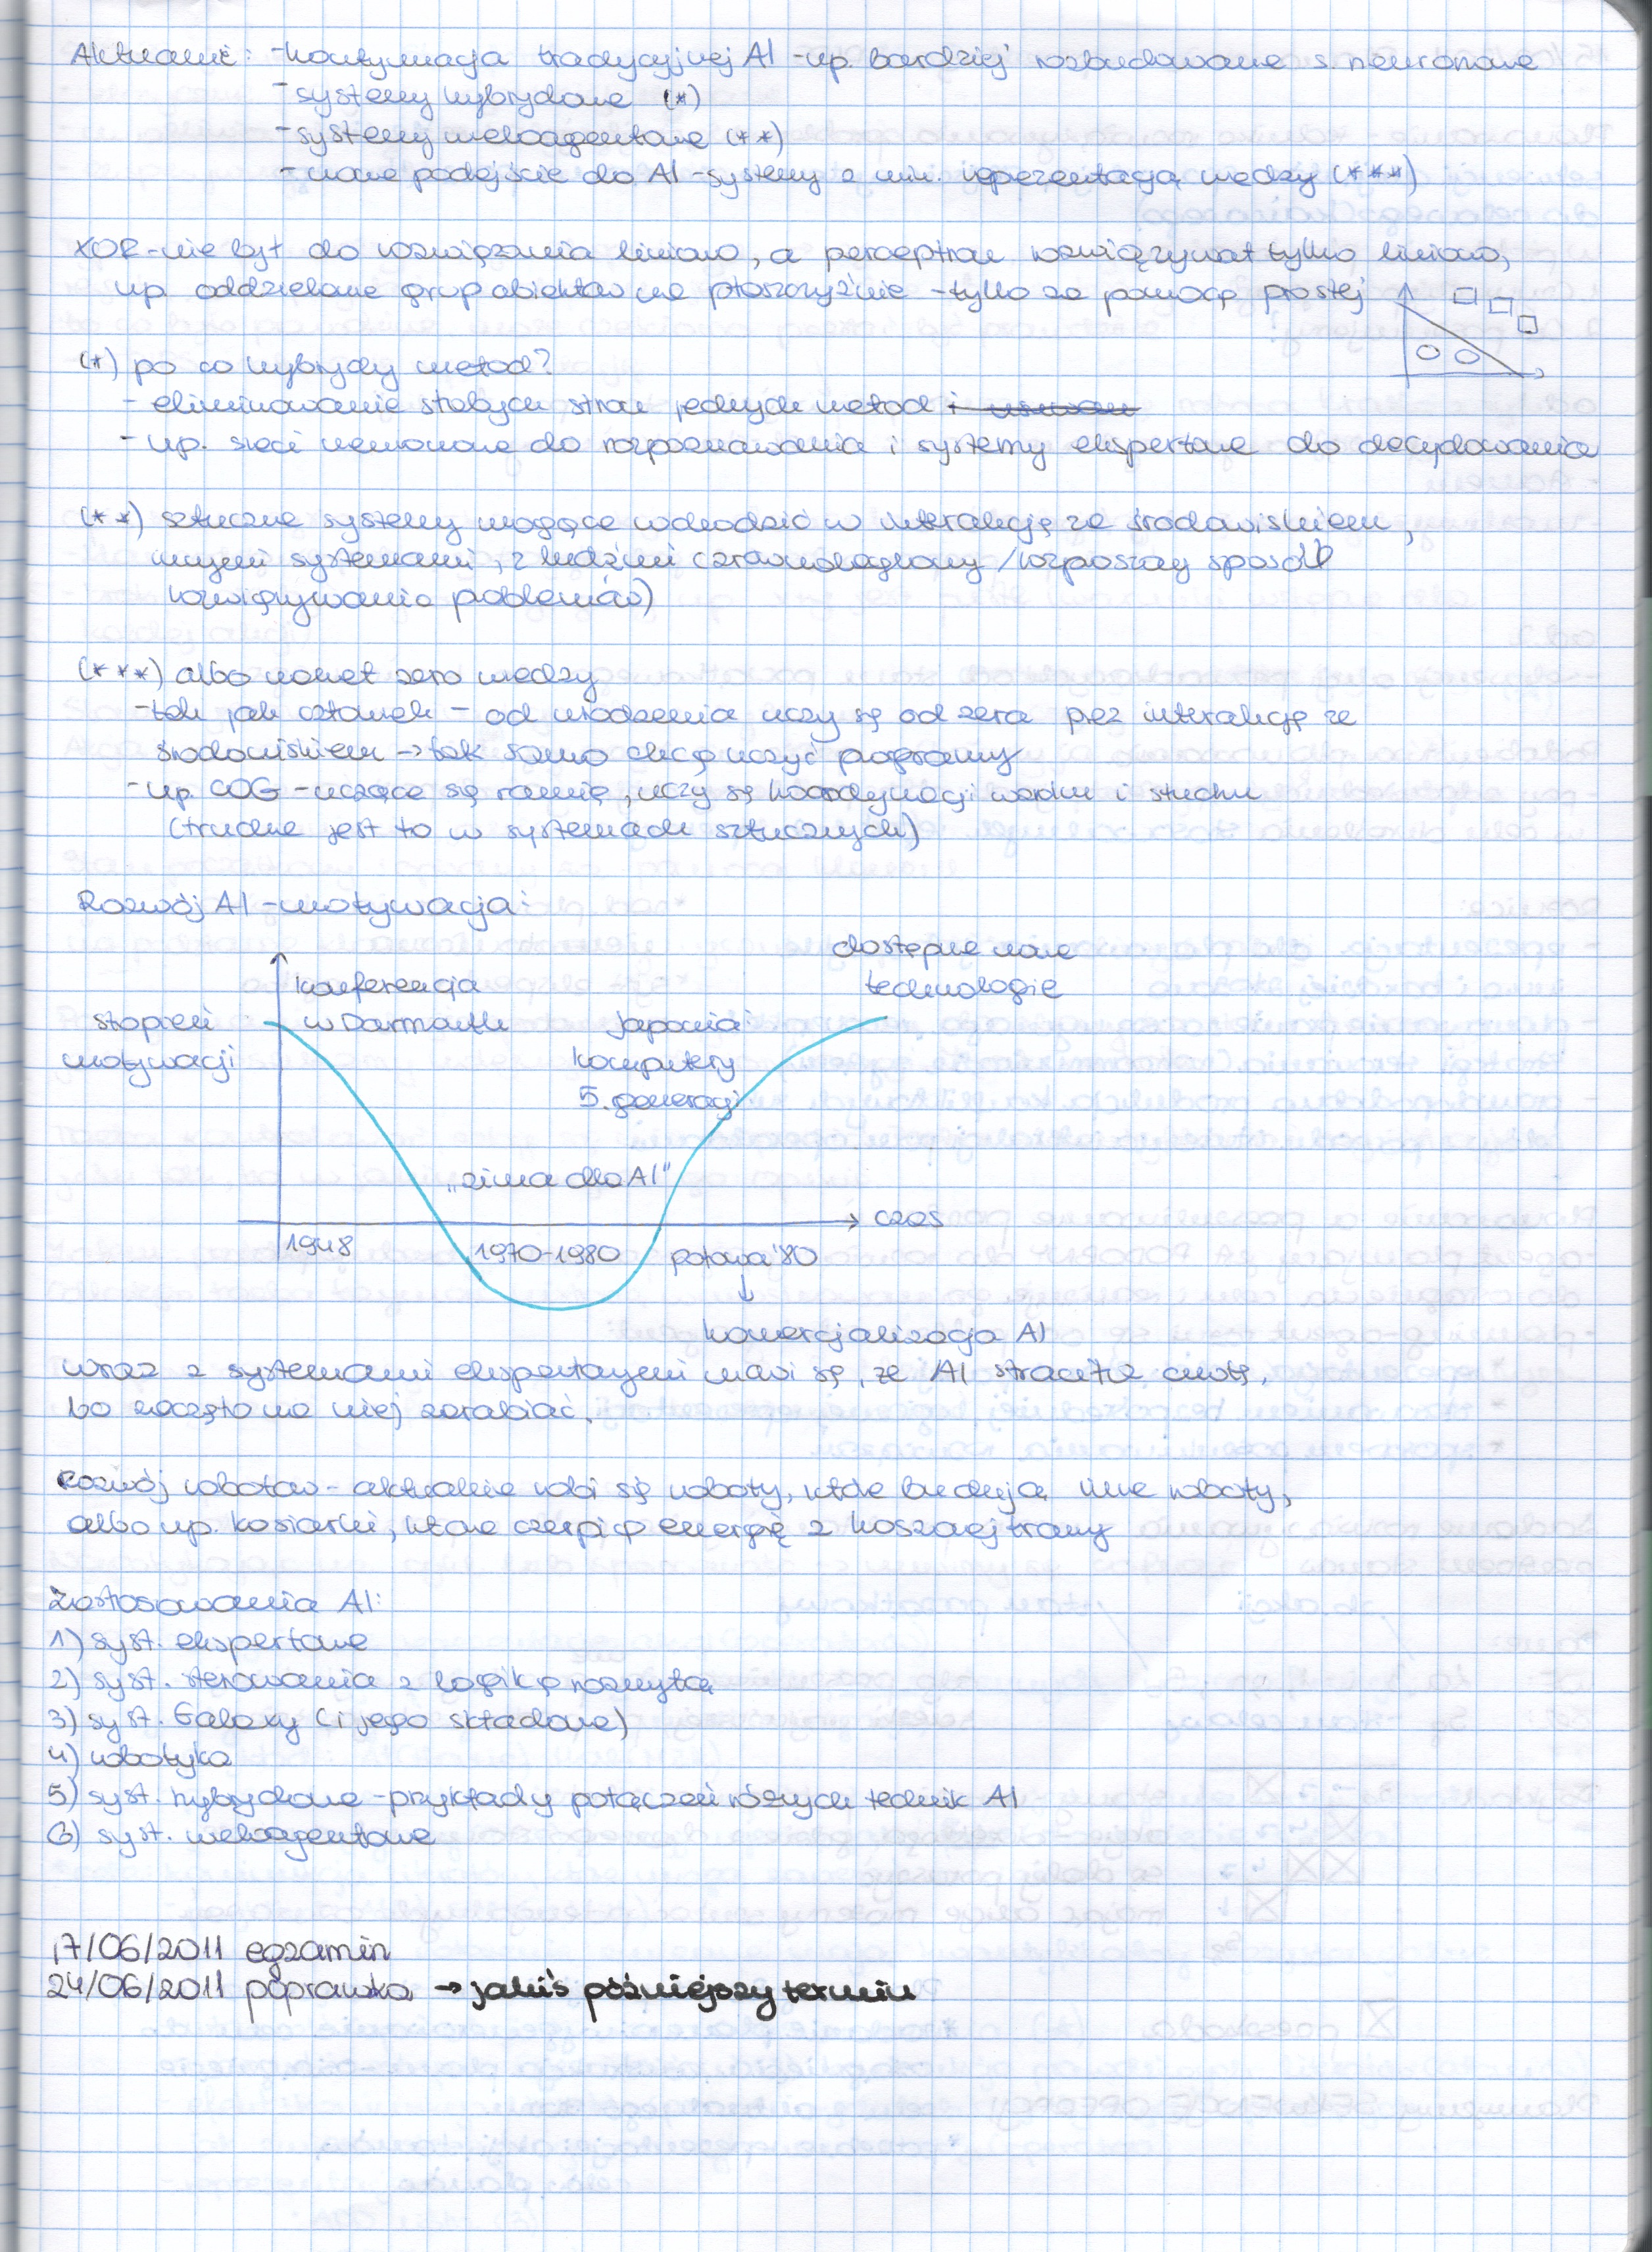 Aktualnie: - kontynuacja tradycyjnej AI - np. bardziej rozbudowane s. neuronowe
- systemy hybrydowe (*)
- systemy wieloagentowe (**)
- nowe podejście do AI - systemy o min. reprezentacją wiedzy (***)
XOR - nie był do rozwiązania liniowo, a perceptron rozwiązywał tylko liniowo,
np. oddzielanie grup obiektów na płaszczyźnie - tylko za pomocą prostej
(*) po co hybrydy metod?
- eliminowanie słabych stron jednych metod
- np. sieci neuronowe do rozpoznawania i systemy ekspertowe do decydowania
(**) sztuczne systemy mogące wchodzić w interakcję ze środowiskiem,
innymi systemami, z ludźmi (zrównoleglony / rozproszony sposób
rozwiązywania problemów)
(***) albo nawet zero wiedzy
- tak jak człowiek - od urodzenia uczy się od zera przez interakcję ze
środowiskiem → tak samo chcą uczyć programy
- np. COG - uczące się ramię, uczy się koordynacji wzroku i słuchu
(trudne jest to w systemach sztucznych)
Rozwój AI - motywacja:
dostępne nowe
technologie
konferencja
w Darmouth
stopień
motywacji
Japonia:
komputery
5. generacji
„zima dla AI"
czas
1948
1970-1980
połowa '80
↓
komercjalizacja AI
wraz z systemami ekspertowymi mówi się, że AI straciła cnotę,
bo zaczęto na niej zarabiać.
Rozwój robotów - aktualnie robi się roboty, które budują inne roboty,
albo np. kosiarki, które czerpią energię z koszonej trawy
Zastosowania AI:
1) syst. ekspertowe
2) syst. sterowania z logiką rozmytą
3) syst. Galaxy (i jego składowe)
4) robotyka
5) syst. hybrydowe - przykłady połączeń różnych technik AI
6) syst. wieloagentowe
17/06/2011 egzamin
24/06/2011 poprawka → jakiś późniejszy termin